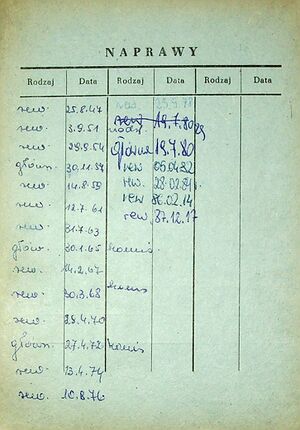 NAPRAWY
Rodzaj Data Rodzaj Data Rodzaj Data
rew. 25.8.47 rew. 23.9.78
rew. 3.9.51
rew. 29.9.54 główna 19.7.80
główn. 30.11.59 rew 05.04.82
rew. 14.8.59 rew. 28.02.84
rew. 12.7.61 rew 86.02.14
rew. 31.7.63 rew. 87.12.17
główn. 30.1.65
rew. 14.2.67
rew. 30.3.68
rew. 29.4.70
główn. 27.4.72
rew. 13.4.74
rew. 10.8.76